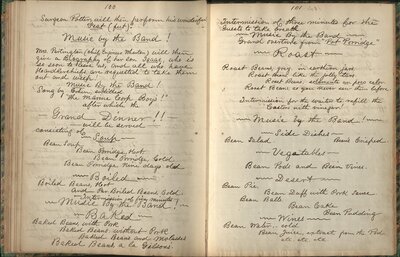 100
Surgeon Potter will then perform his wonderful
Feat (put)
Music by the Band!
Mrs Partington (that Eugene Hunter) will then
give a Biography of her son Isaac, who is
the son to Ruin by and all who have
Handkerchiefs are requested to take them
out and weep.
Music by the Band!
Song by Baker entitled
"The Marine Corps Boys!"
after which the
Grand Dinner!!
will be served
consisting of
Soup
Bean Soup
Bean Porridge, Hot
Bean Porridge, Cold
Bean Porridge nine days old
Boiled
Boiled Beans, Hot
And Par Boiled Beans Cold
Intermission of five minutes
Music by the Band!
Baked
Baked Beans with Pork
Baked Beans without Pork
Baked Beans and Molasses
Baked Beans a la
101
Intermission of three minutes for the
Guests to take breath
Music by the Band
Grand overture from "Pot Porridge"
Roast
Roast Beans, grey, in earthen jars
Roast Beans like the jolly tars
Roast Beans, in pure color
Roast Beans as you never saw them before
Intermission for the waiters to refill the
Castor with vinegar!
Music by the Band!
Side Dishes
Bean Salad
Beans Crisped
Vegetables
Bean Pods and Bean Vines
Desert
Bean Pie,
Bean Duff with Pork Sauce
Bean Balls
Bean Cake
Bean Pudding
Wines
Bean Water, cold
Bean Juice extract from the Pod
etc etc etc